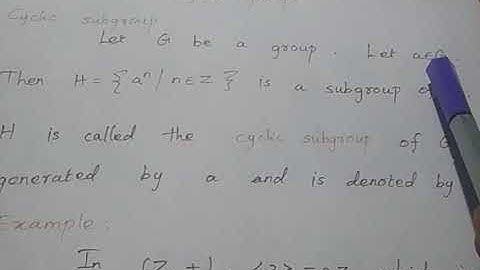 Cyclic subgroup
Let G be a group. Let a∈G.
Then H = { aⁿ / n ∈ Z } is a subgroup of
H is called the cyclic subgroup of G
generated by a and is denoted by
Example:
In (Z, +)